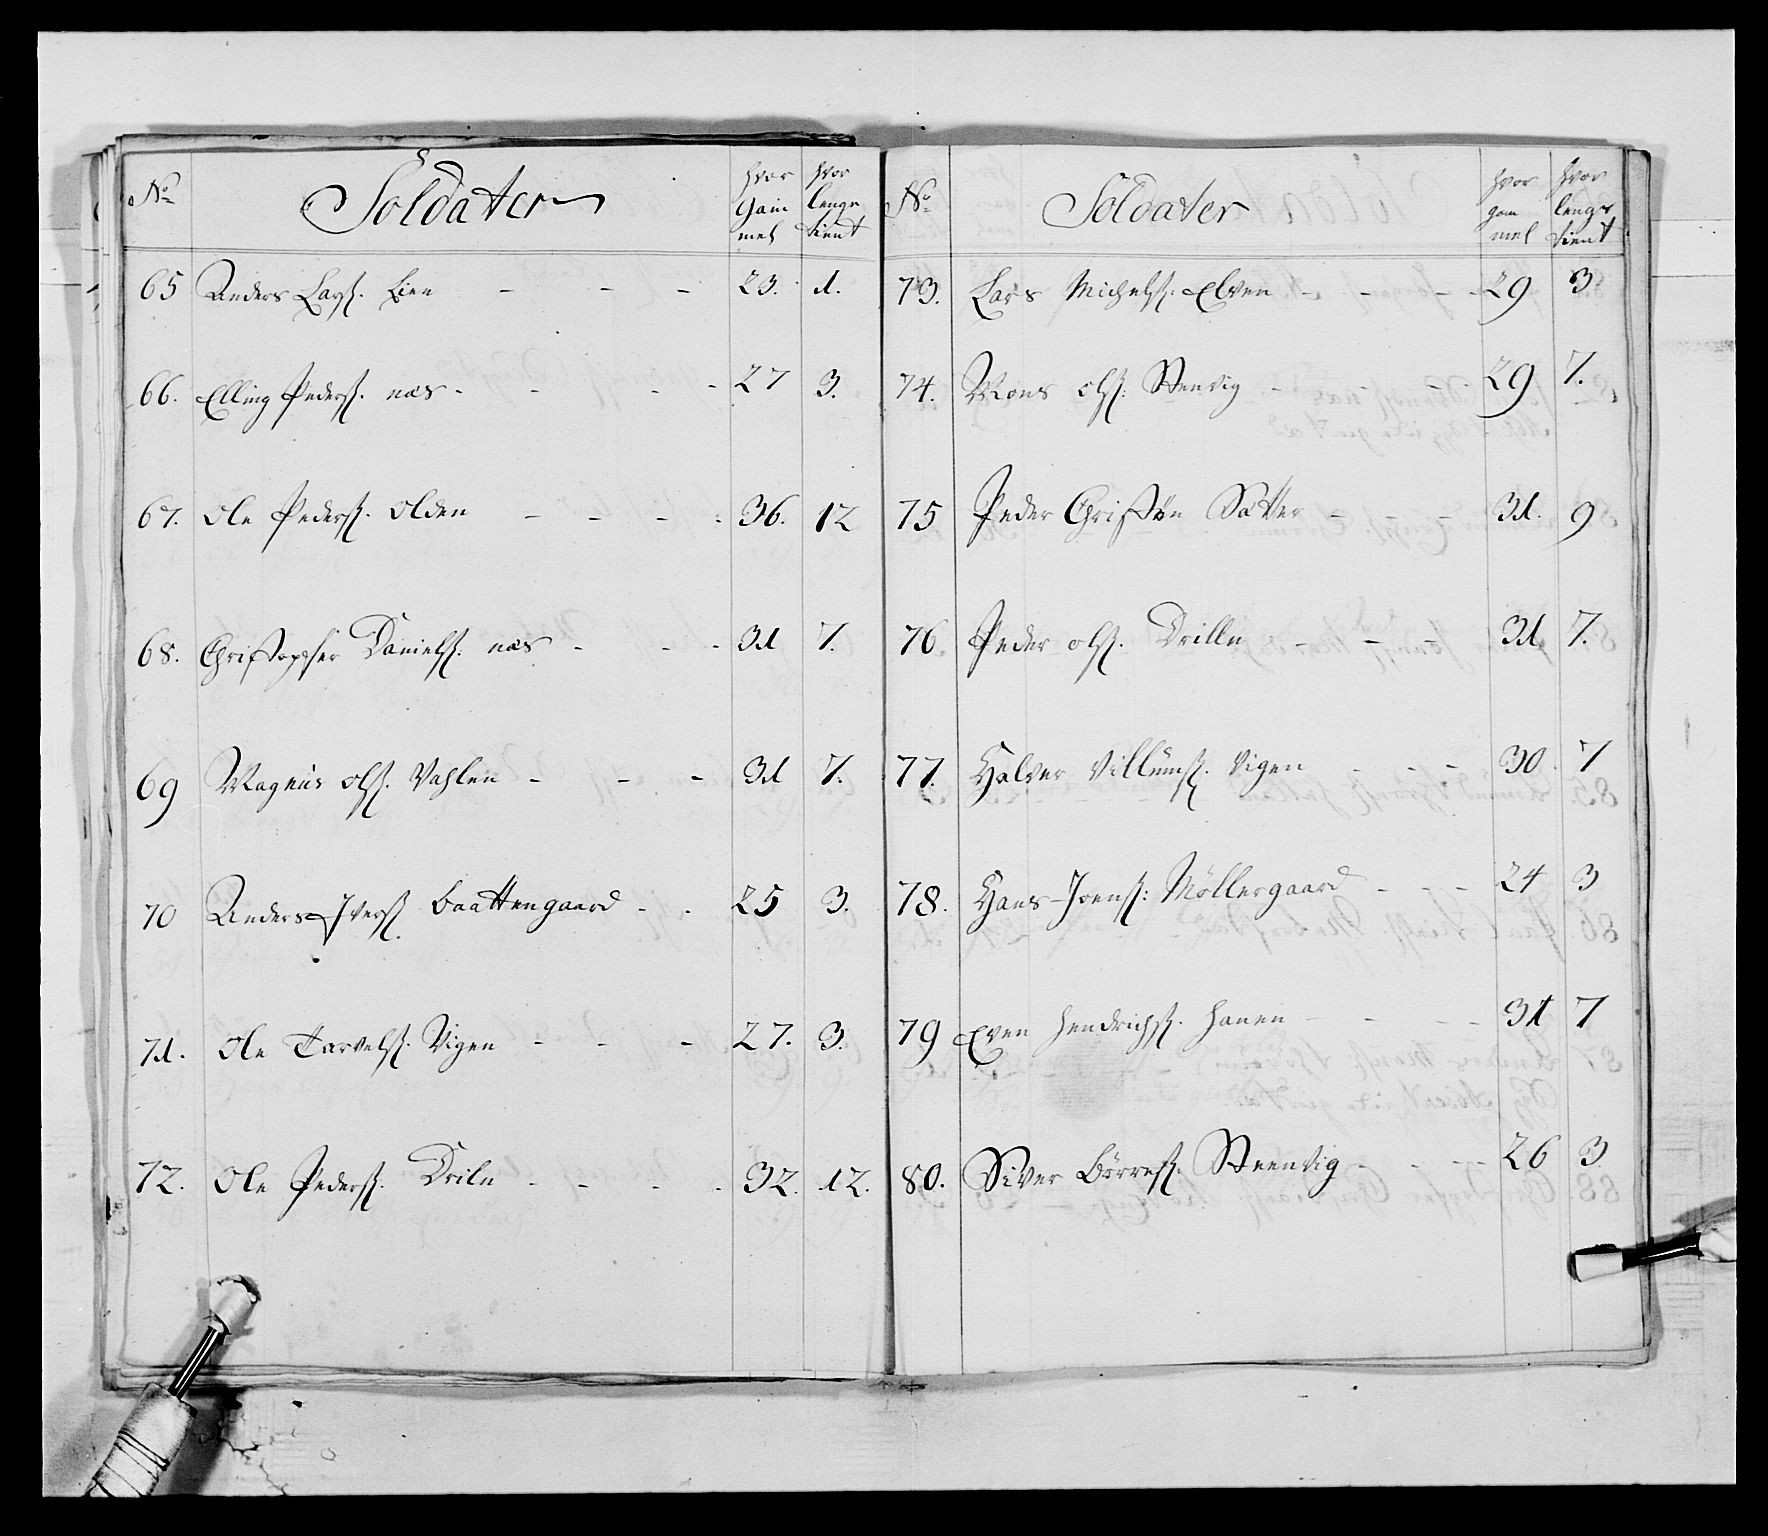 No Soldater hvor Gammel hvor lenge tient
65 Anders Larss. Lien - - - 23. 1.
66. Elling Peders. næs - - - - 27 3.
67. Ole Peders. Olden - - - - 36. 12
68. Christopher Daniels. næs - - - 31 7.
69 Magnus ols. Vahlen - - - 31 7.
70 Anders Ivers. baattengaard - - 25 3.
71. Ole Tarvels. Vigen - - - 27. 3.
72. Ole Peders. Driln - - - - 32. 12.
No Soldater hvor gammel hvor lenge tient
73. Lars Michels. Elven - - - - 29 3
74. Mons ols. Stenvig - - - 29 7.
75 Peder Christen Sæter - - - 31. 9
76 Peder ols. Drilln - - - 31 7.
77. Halver Villums. Vigen - - - 30. 7
78. Hans Joens: Möllergaard - - - 24 3
79 Even Hendrichs. hanen - - - - 31 7
80. Siver Börres. Steenvig - - - - 26 3